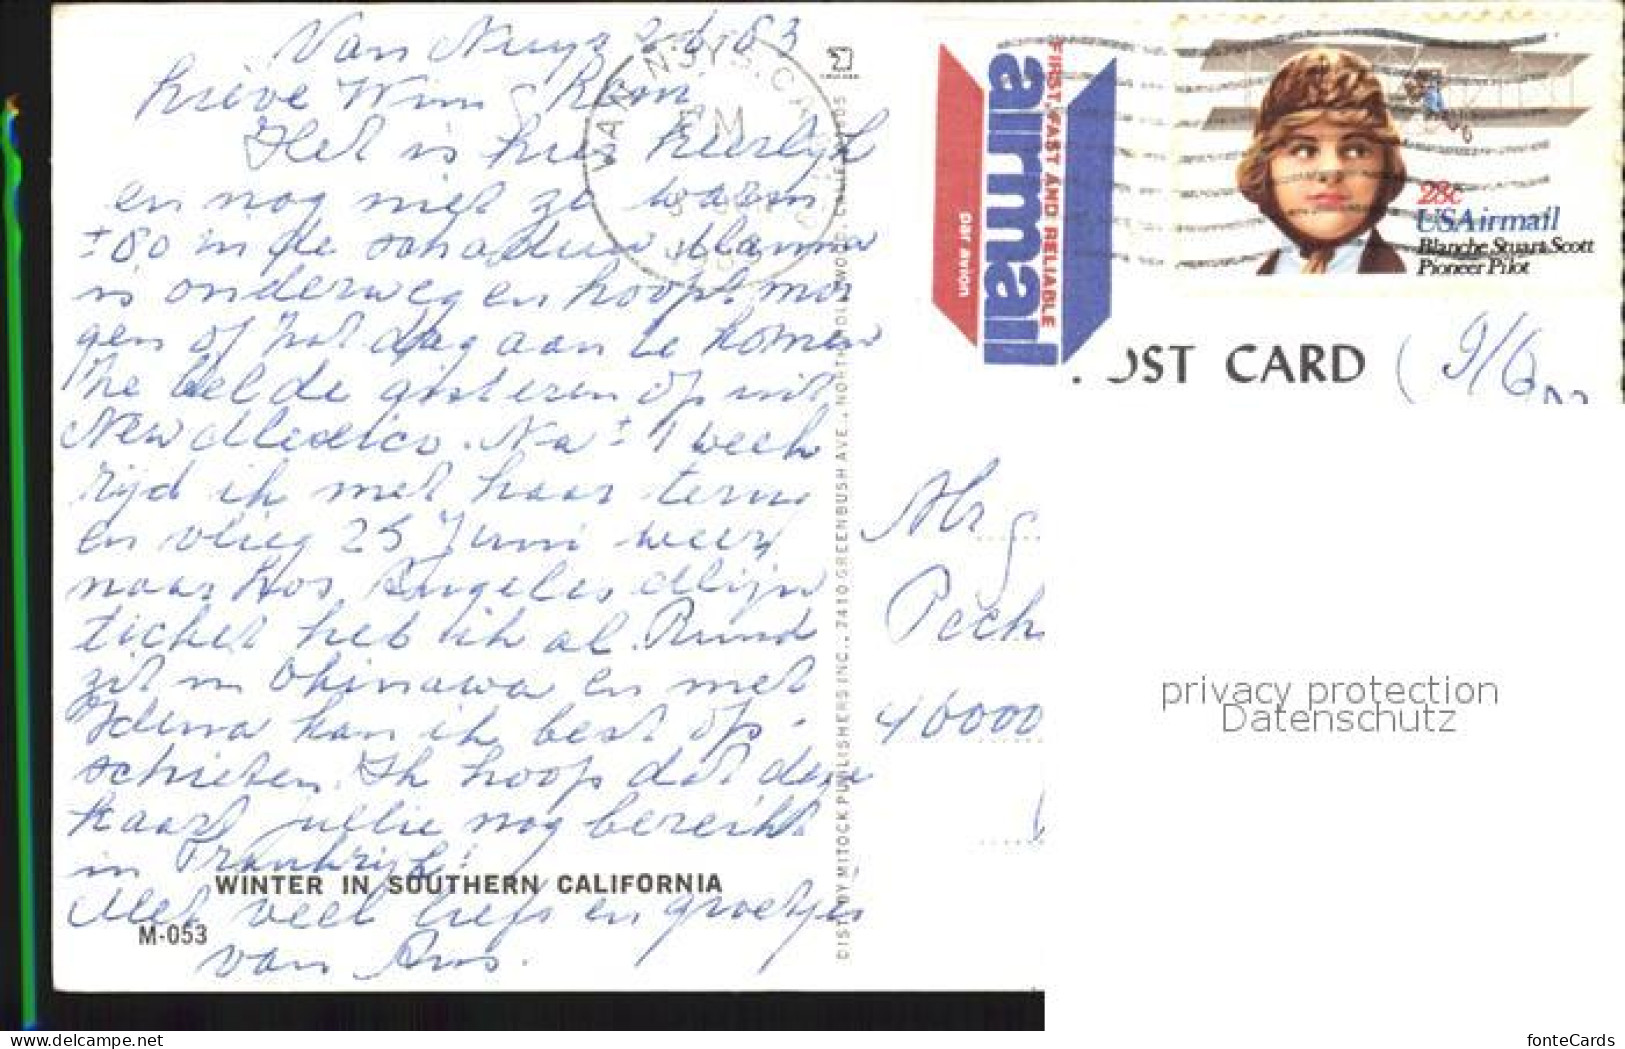 Van Nuys 2/6 83
Lieve Wim & Roon
Het is hier heerlijk
en nog niet zo warm
± 80 in de schaduw Mamma
is onderweg en hoopt mor
gen of zat dag aan te komen
Ze belde gisteren op uit
New Mexico. Na ± 1 week
rijd ik met haar terug
en vlieg 25 Juni weer
naar Los Angeles Mijn
ticket heb ik al. Ruud
zit in Okinawa en met
Idema kan ik best op-
schieten. Ik hoop dat deze
kaart jullie nog bereikt
in Frankrijk!
WINTER IN SOUTHERN CALIFORNIA
Met veel liefs en groetjes
M-053
van
VAN NUYS, CA
PM
DIST. BY MITOCK PUBLISHERS INC., 7410 GREENBUSH AVE., NORTH HOLLYWOOD, CALIF. 91605
FIRST, FAST AND RELIABLE
airmail
par avion
28c
USAirmail
Blanche Stuart Scott
Pioneer Pilot
POST CARD
(9/6
Mr
Pech
46000
privacy protection
Datenschutz
www.delcampe.net
fonteCards